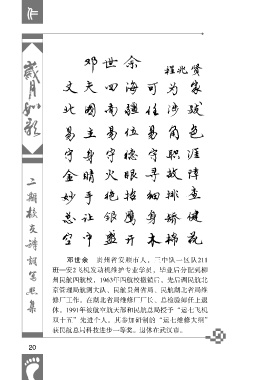 作
岁月如歌
二期校友诗词写照集
邓世余
程兆贤
天四海可为家
北国南疆任涉跋
易主易位易角色
守身守德守职涯
金睛火眼寻故障
妙手绝招细排查
忘让银鹰身矫健
空中盛开木棉花
邓世余 贵州省安顺市人，三中队一区队211
班一安2飞机发动机维护专业学员。毕业后分配到柳
州民航四航校，1963年四航校撤销后，先后调民航北
京管理局航测大队、民航贵州省局、民航湖北省局维
修厂工作。在湖北省局维修厂厂长、总检验师任上退
休。1991年被航空航天部和民航总局授予“运七飞机
双十五”先进个人，其参加研制的“运七维修大纲”
获民航总局科技进步一等奖。退休在武汉市。
20